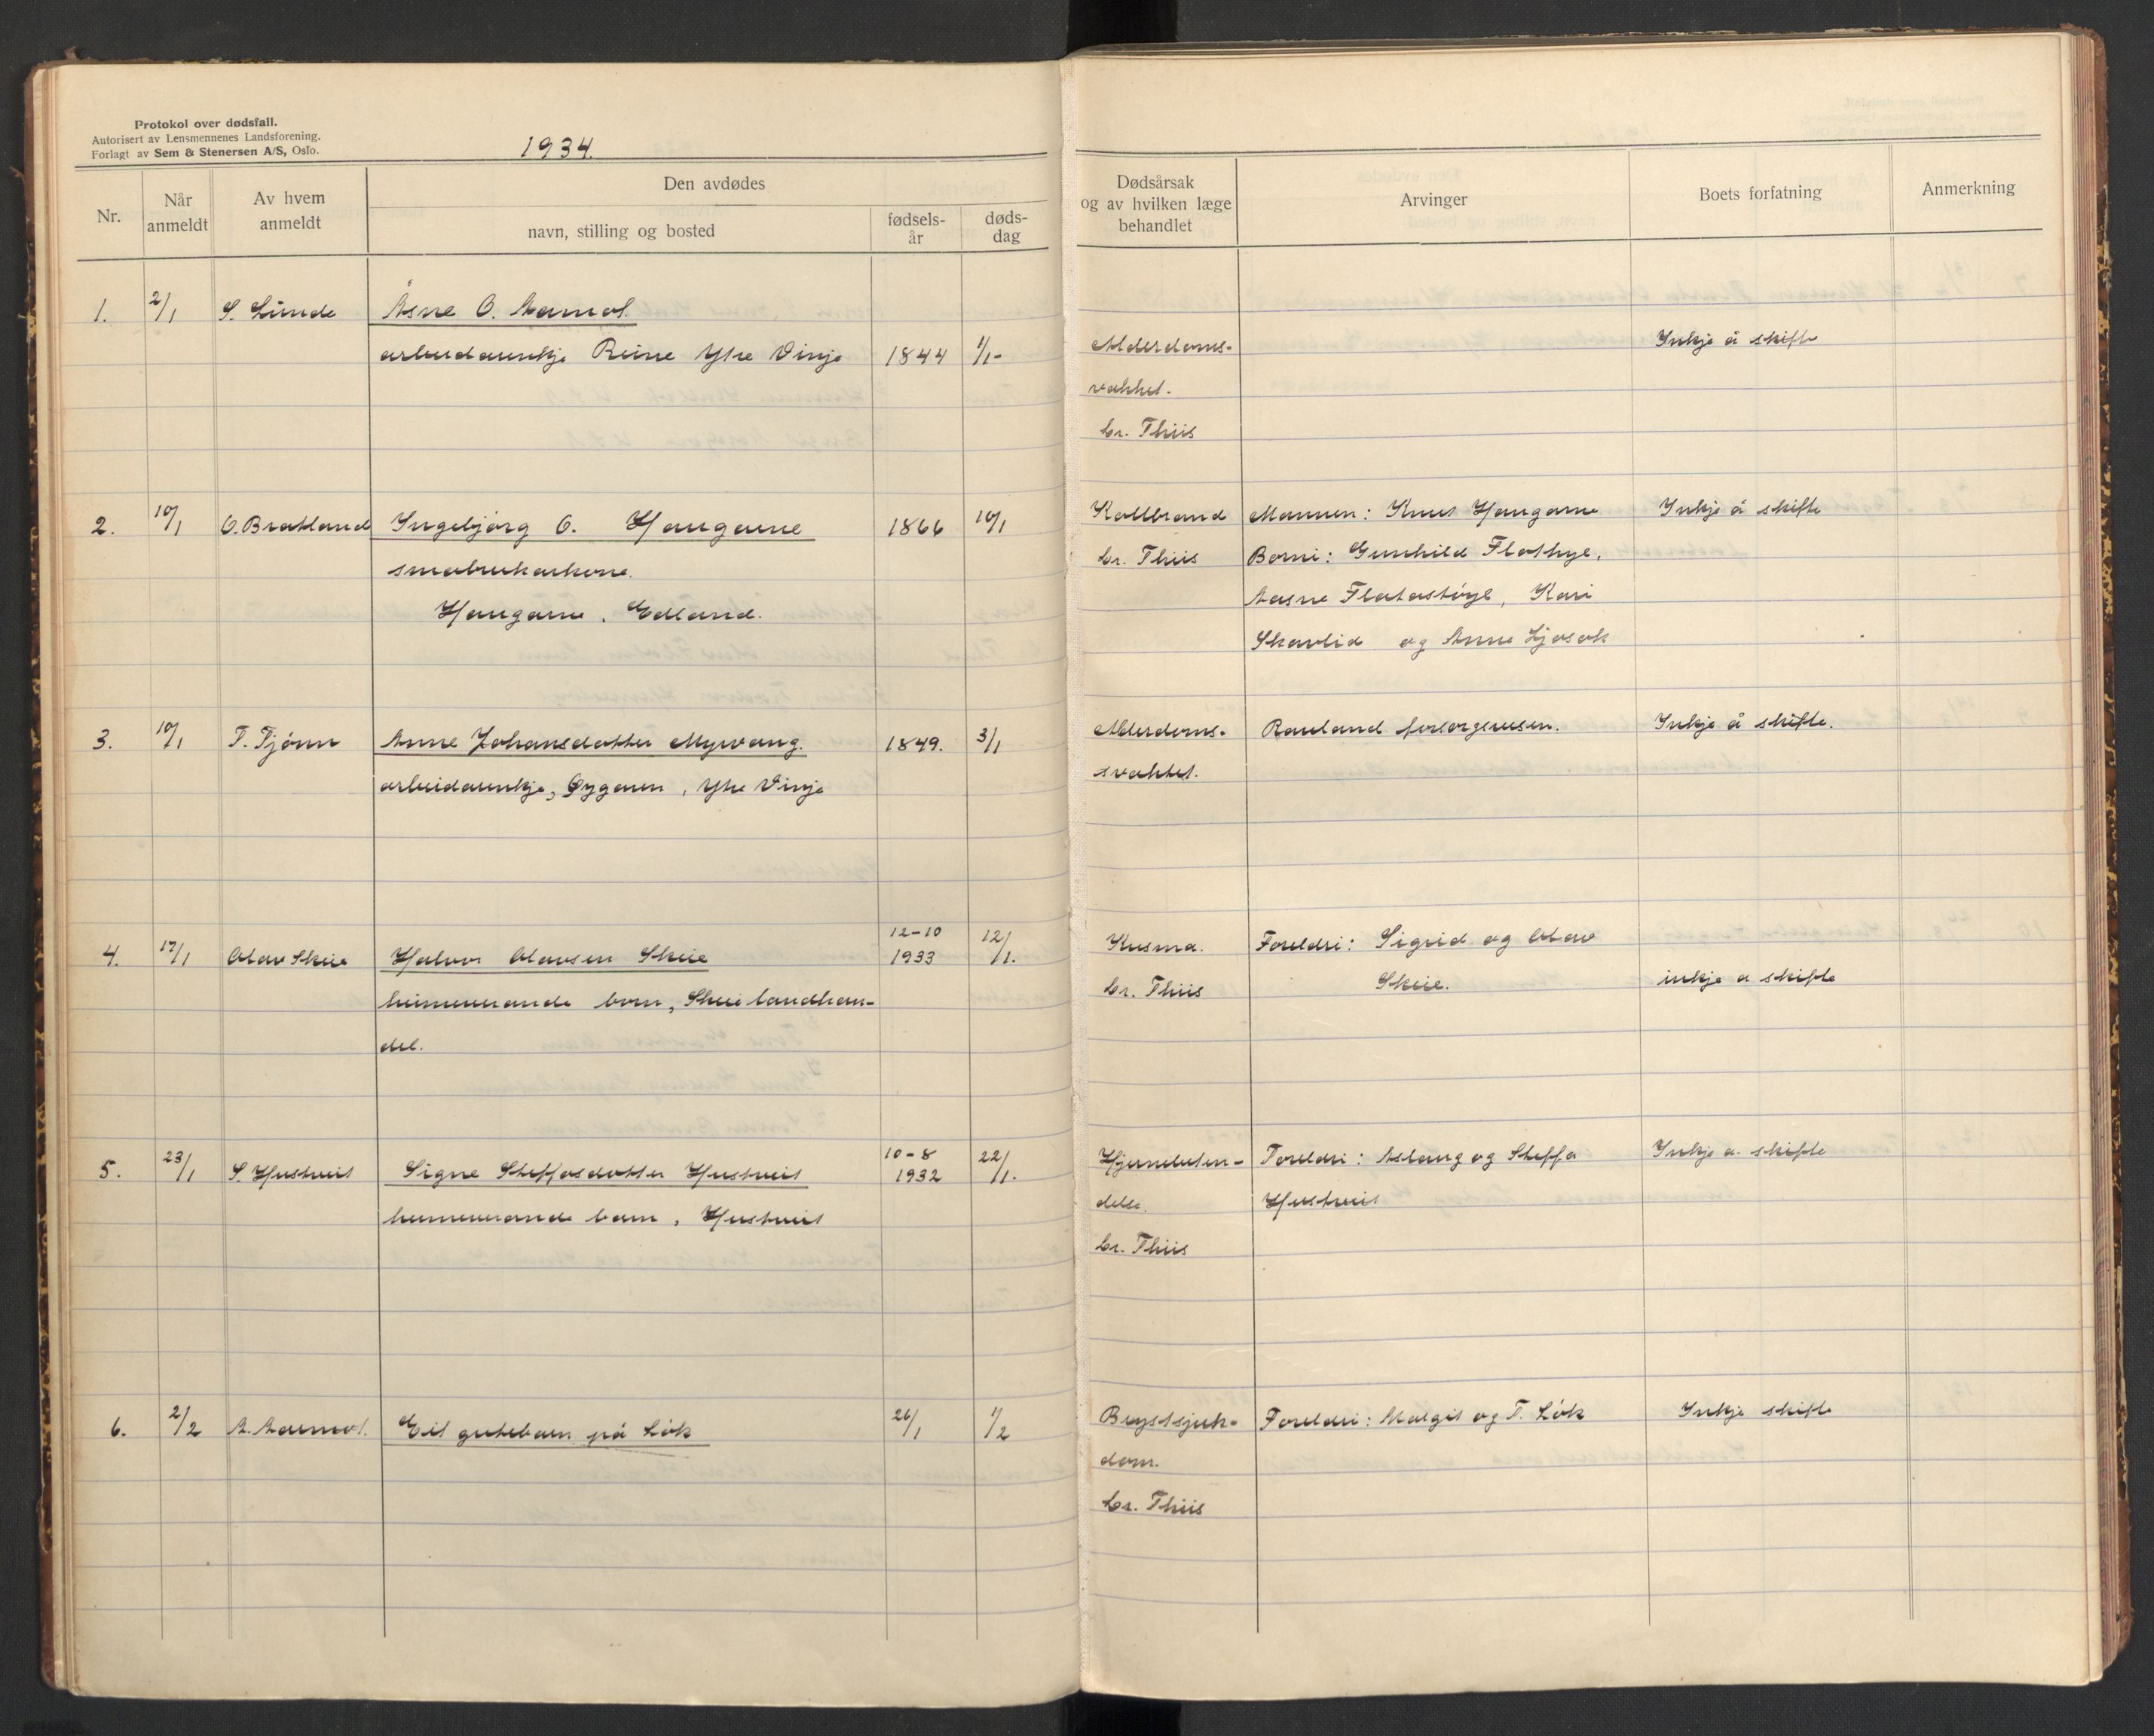 Protokol over dødsfall.
Autorisert av Lensmennenes Landsforening.
Forlagt av Sem & Stenersen A/S, Oslo.
1934.
Nr.
Når anmeldt
Av hvem anmeldt
Den avdødes
navn, stilling og bosted
fødselsår
dødsdag
Dødsårsak og av hvilken læge behandlet
Arvinger
Boets forfatning
Anmerkning
1. 2/1 S. Lunde Åsne O. Aamot
arbeidarenkje Ytre Vinje 1844 1/1- Alderdoms- Inkje å skifte
Dr. Thiis
2. 10/1 O. Bratland Ingebjørg O. Haugane 1866 10/1 Kollbrand Mannen: Knut Haugane Inkje å skifte
småbrukarkone. Dr. Thiis Borni: Gunhild Flothyl,
Haugane, Edland. Aasne Flatastøyl, Kari
Skavlid og Anne Ljosok
3. 10/1 T. Tjønn Anne Johansdotter Myrvang. 1849. 3/1 Alderdoms- Rauland forsorgsvesen. Inkje å skifte.
arbeidarenkje, Øygaren, Ytre Vinje svakhet.
4. 17/1 Olav Skeie Halvor Olavsen Skeie 12-10 1933 12/1. Krusma. Foreldri: Sigrid og Olav
heimeverande born, Skeie landhan- Dr. Thiis Skeie. inkje a skifte
del.
5. 23/1 S. Hustveit Signe Steffosdotter Hustveit 10-8 1932 22/1. Hjernebeten- Foreldri: Aslaug og Steffa Inkje a skifte
heimeverande barn, Hustveit delse. Hustveit
Dr. Thiis
6. 2/2 Eit gutebarn på Løk 26/1 1/2 Brystsjuk- Foreldri: Margit og T. Løk Inkje skifte
dom.
Dr. Thiis